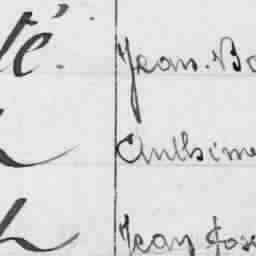 té. Jean. Ba
Anthime
Jean Jose